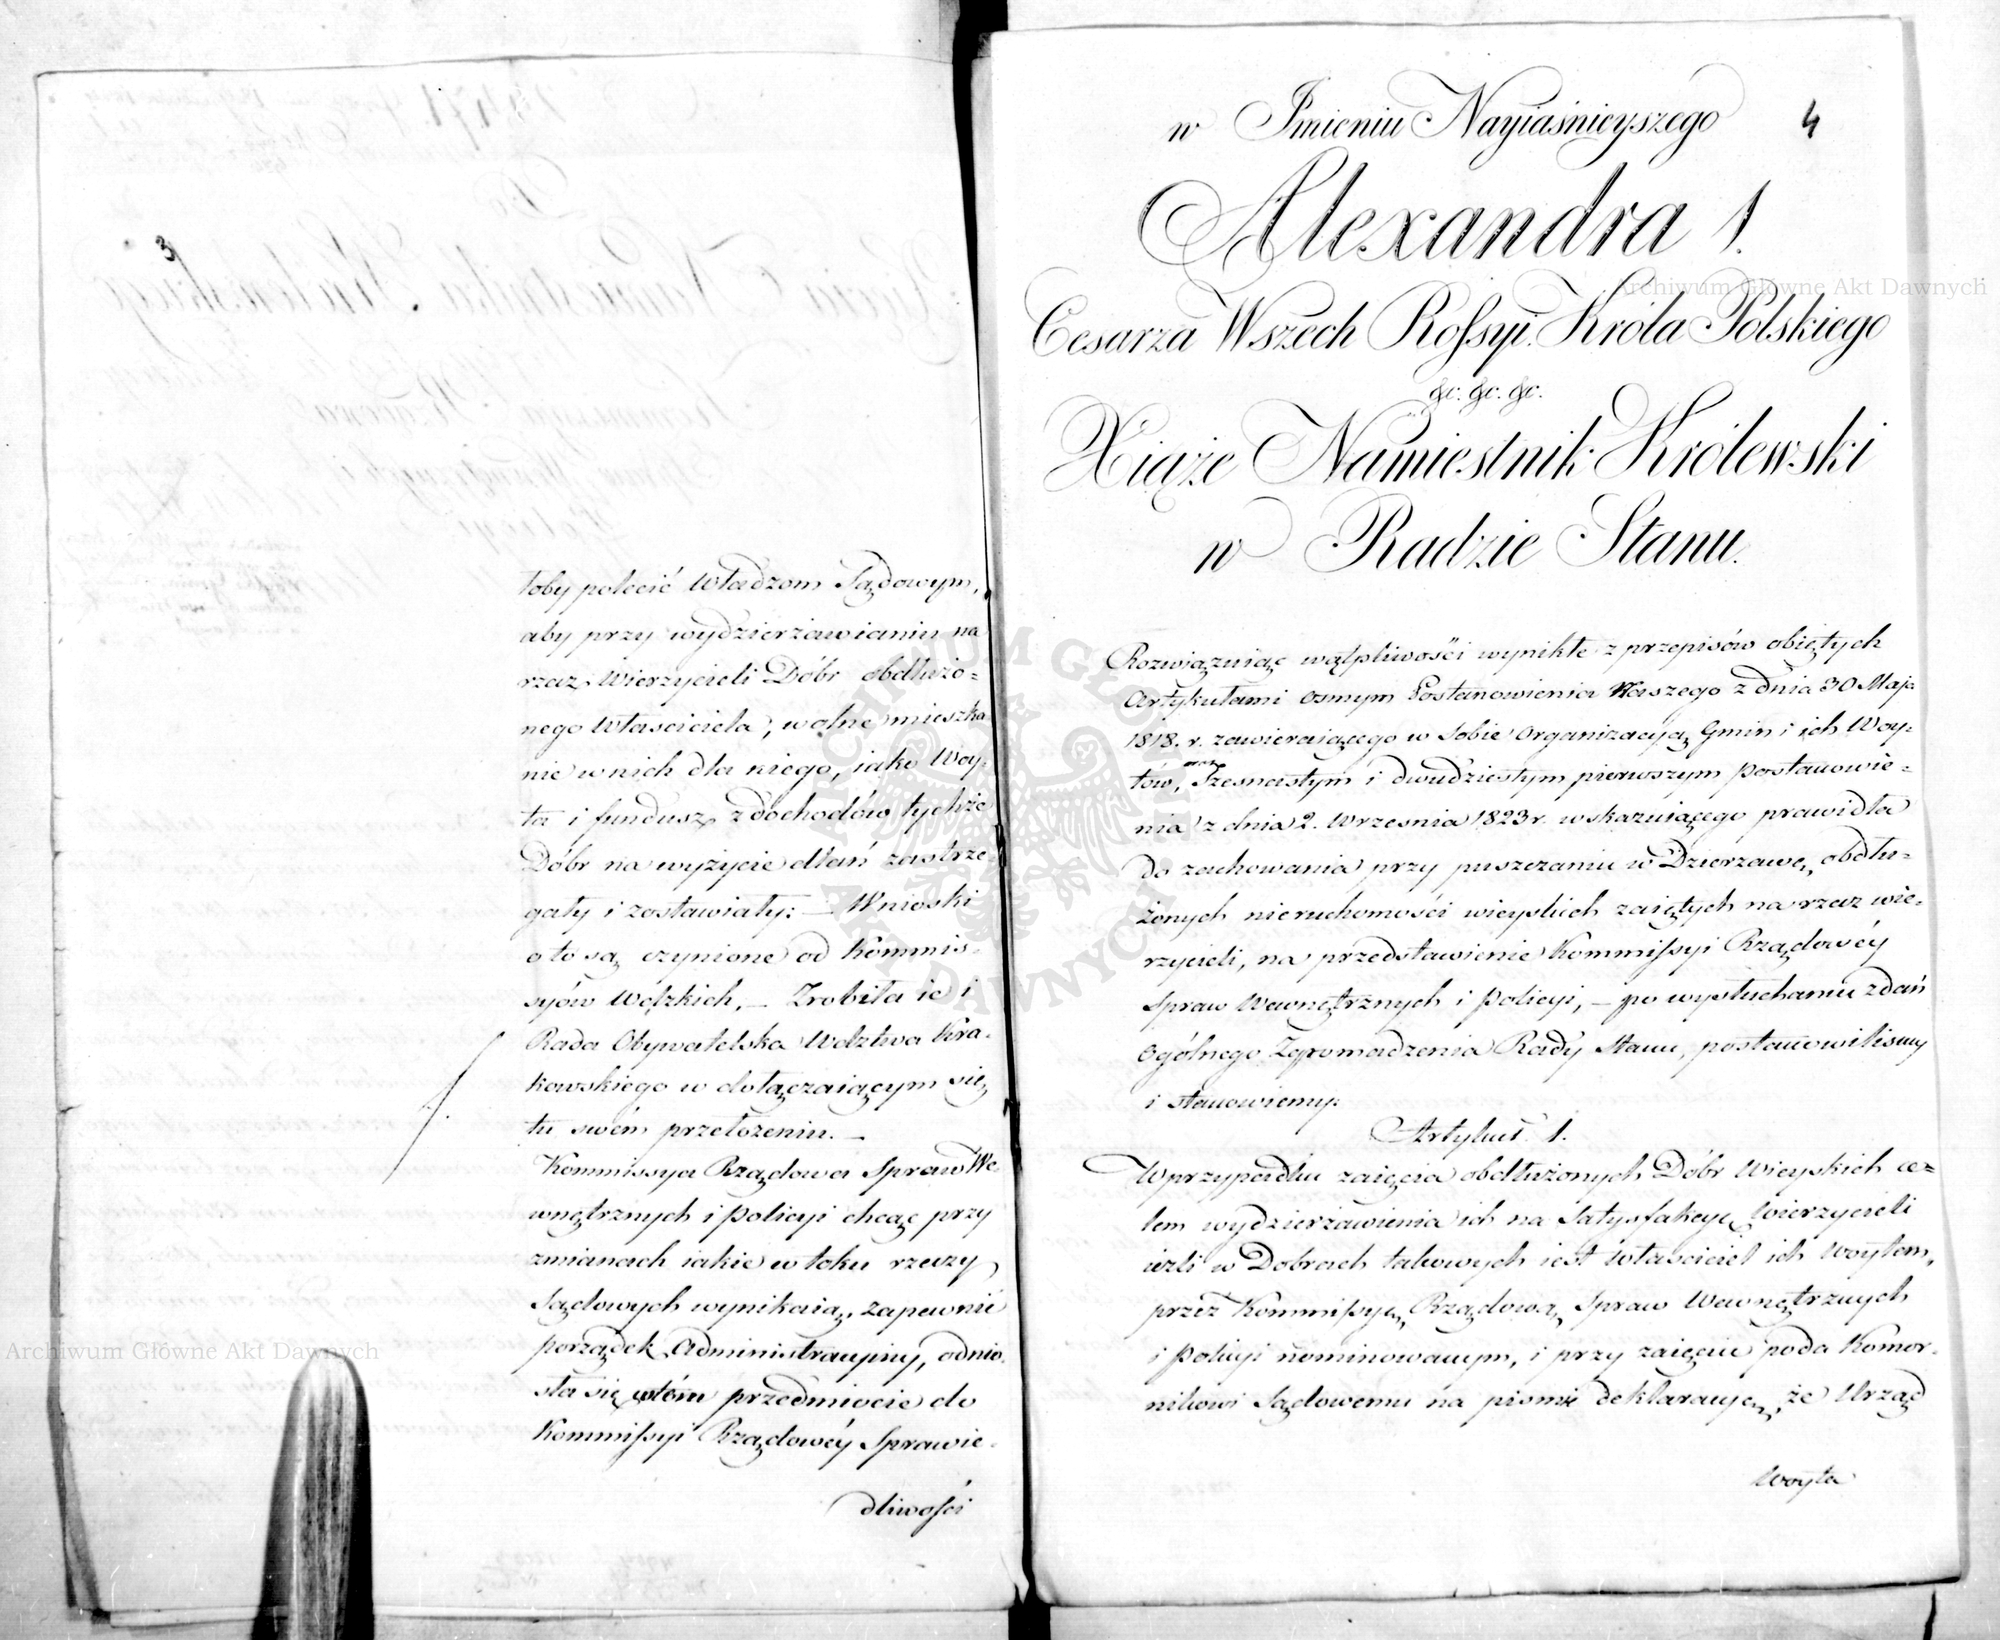 3
toby polecić Władzom Sądowym,
aby przy wydzierżawianiu na
rzecz Wierzycieli Dóbr obdłużo-
nego Właściciela, wolne mieszka
nie w nich dla niego, iako Woy-
ta i fundusz z dochodów tychże
Dóbr na wyżycie dlań zastrze-
gały i zostawiały: — Wnioski
o to są czynione od Kommis-
syów Wdzkich, — Zrobiła ie i
Rada Obywatelska Wdztwa Kra-
kowskiego w dołączaiącym się
tu swém przełożeniu. —
Kommissya Rządowa Spraw We
wnętrznych i Policyi chcąc przy
zmianach iakie w toku rzeczy
Sądowych wynikaią, zapewnić
porządek Administracyiny, odnio-
sła się w tém przedmiocie do
Kommissyi Rządowéy Sprawie-
dliwości
4
w Imieniu Nayiaśnieyszego
Alexandra 1.
Cesarza Wszech Rossyi. Króla Polskiego
&c. &c. &c.
Xiąże Namiestnik Królewski
w Radzie Stanu.
Rozwiązuiąc wątpliwości wynikłe z przepisów obiętych
Artykułami osmym Postanowienia Naszego z dnia 30 Maja
1818. r. zawieraiącego w sobie Organizacyą Gmin i ich Woy-
tów, oraz Szesnastym i dwudziestym pierwszym postanowie-
nia z dnia 2. Września 1823 r. wskazuiącego prawidła
do zachowania przy puszczaniu w Dzierżawę, obdłu-
żonych nieruchomości wieyskich zaiętych na rzecz wie-
rzycieli, na przedstawienie Kommissyi Rządowéy
Spraw Wewnętrznych i Policyi, — po wysłuchaniu zdań
Ogólnego Zgromadzenia Rady Stanu, postanowilismy
i stanowiemy:
Artykuł 1.
W przypadku zaięcia obdłużonych Dóbr Wieyskich ce-
lem wydzierżawienia ich na Satysfakcyę Wierzycieli
ieżli w Dobrach takowych iest właściciel ich Woytem,
przez Kommissyę Rządową Spraw Wewnętrznych
i Policyi nominowanym, i przy zaięciu poda Komor-
nikowi Sądowemu na piśmie deklaracyę, że Urząd
Woyta
Archiwum Główne Akt Dawnych
Archiwum Główne Akt Dawnych
ARCHIWUM GŁÓWNE
AKT DAWNYCH